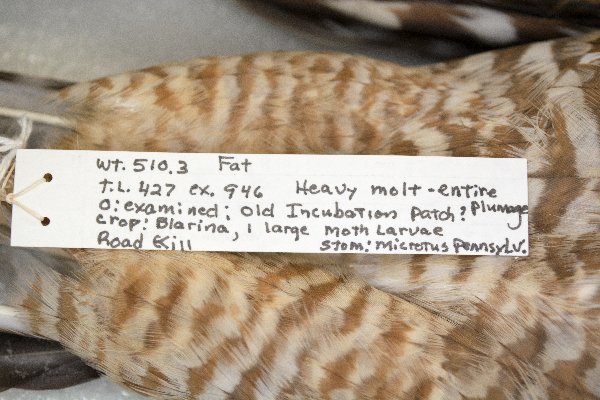 Wt. 510.3 Fat
T.L. 427 ex. 946 Heavy molt-entire
O: examined: Old Incubation Patch: Plumage
crop: Blarina, 1 large moth Larvae
Road Kill stom: Microtus Pennsylv.